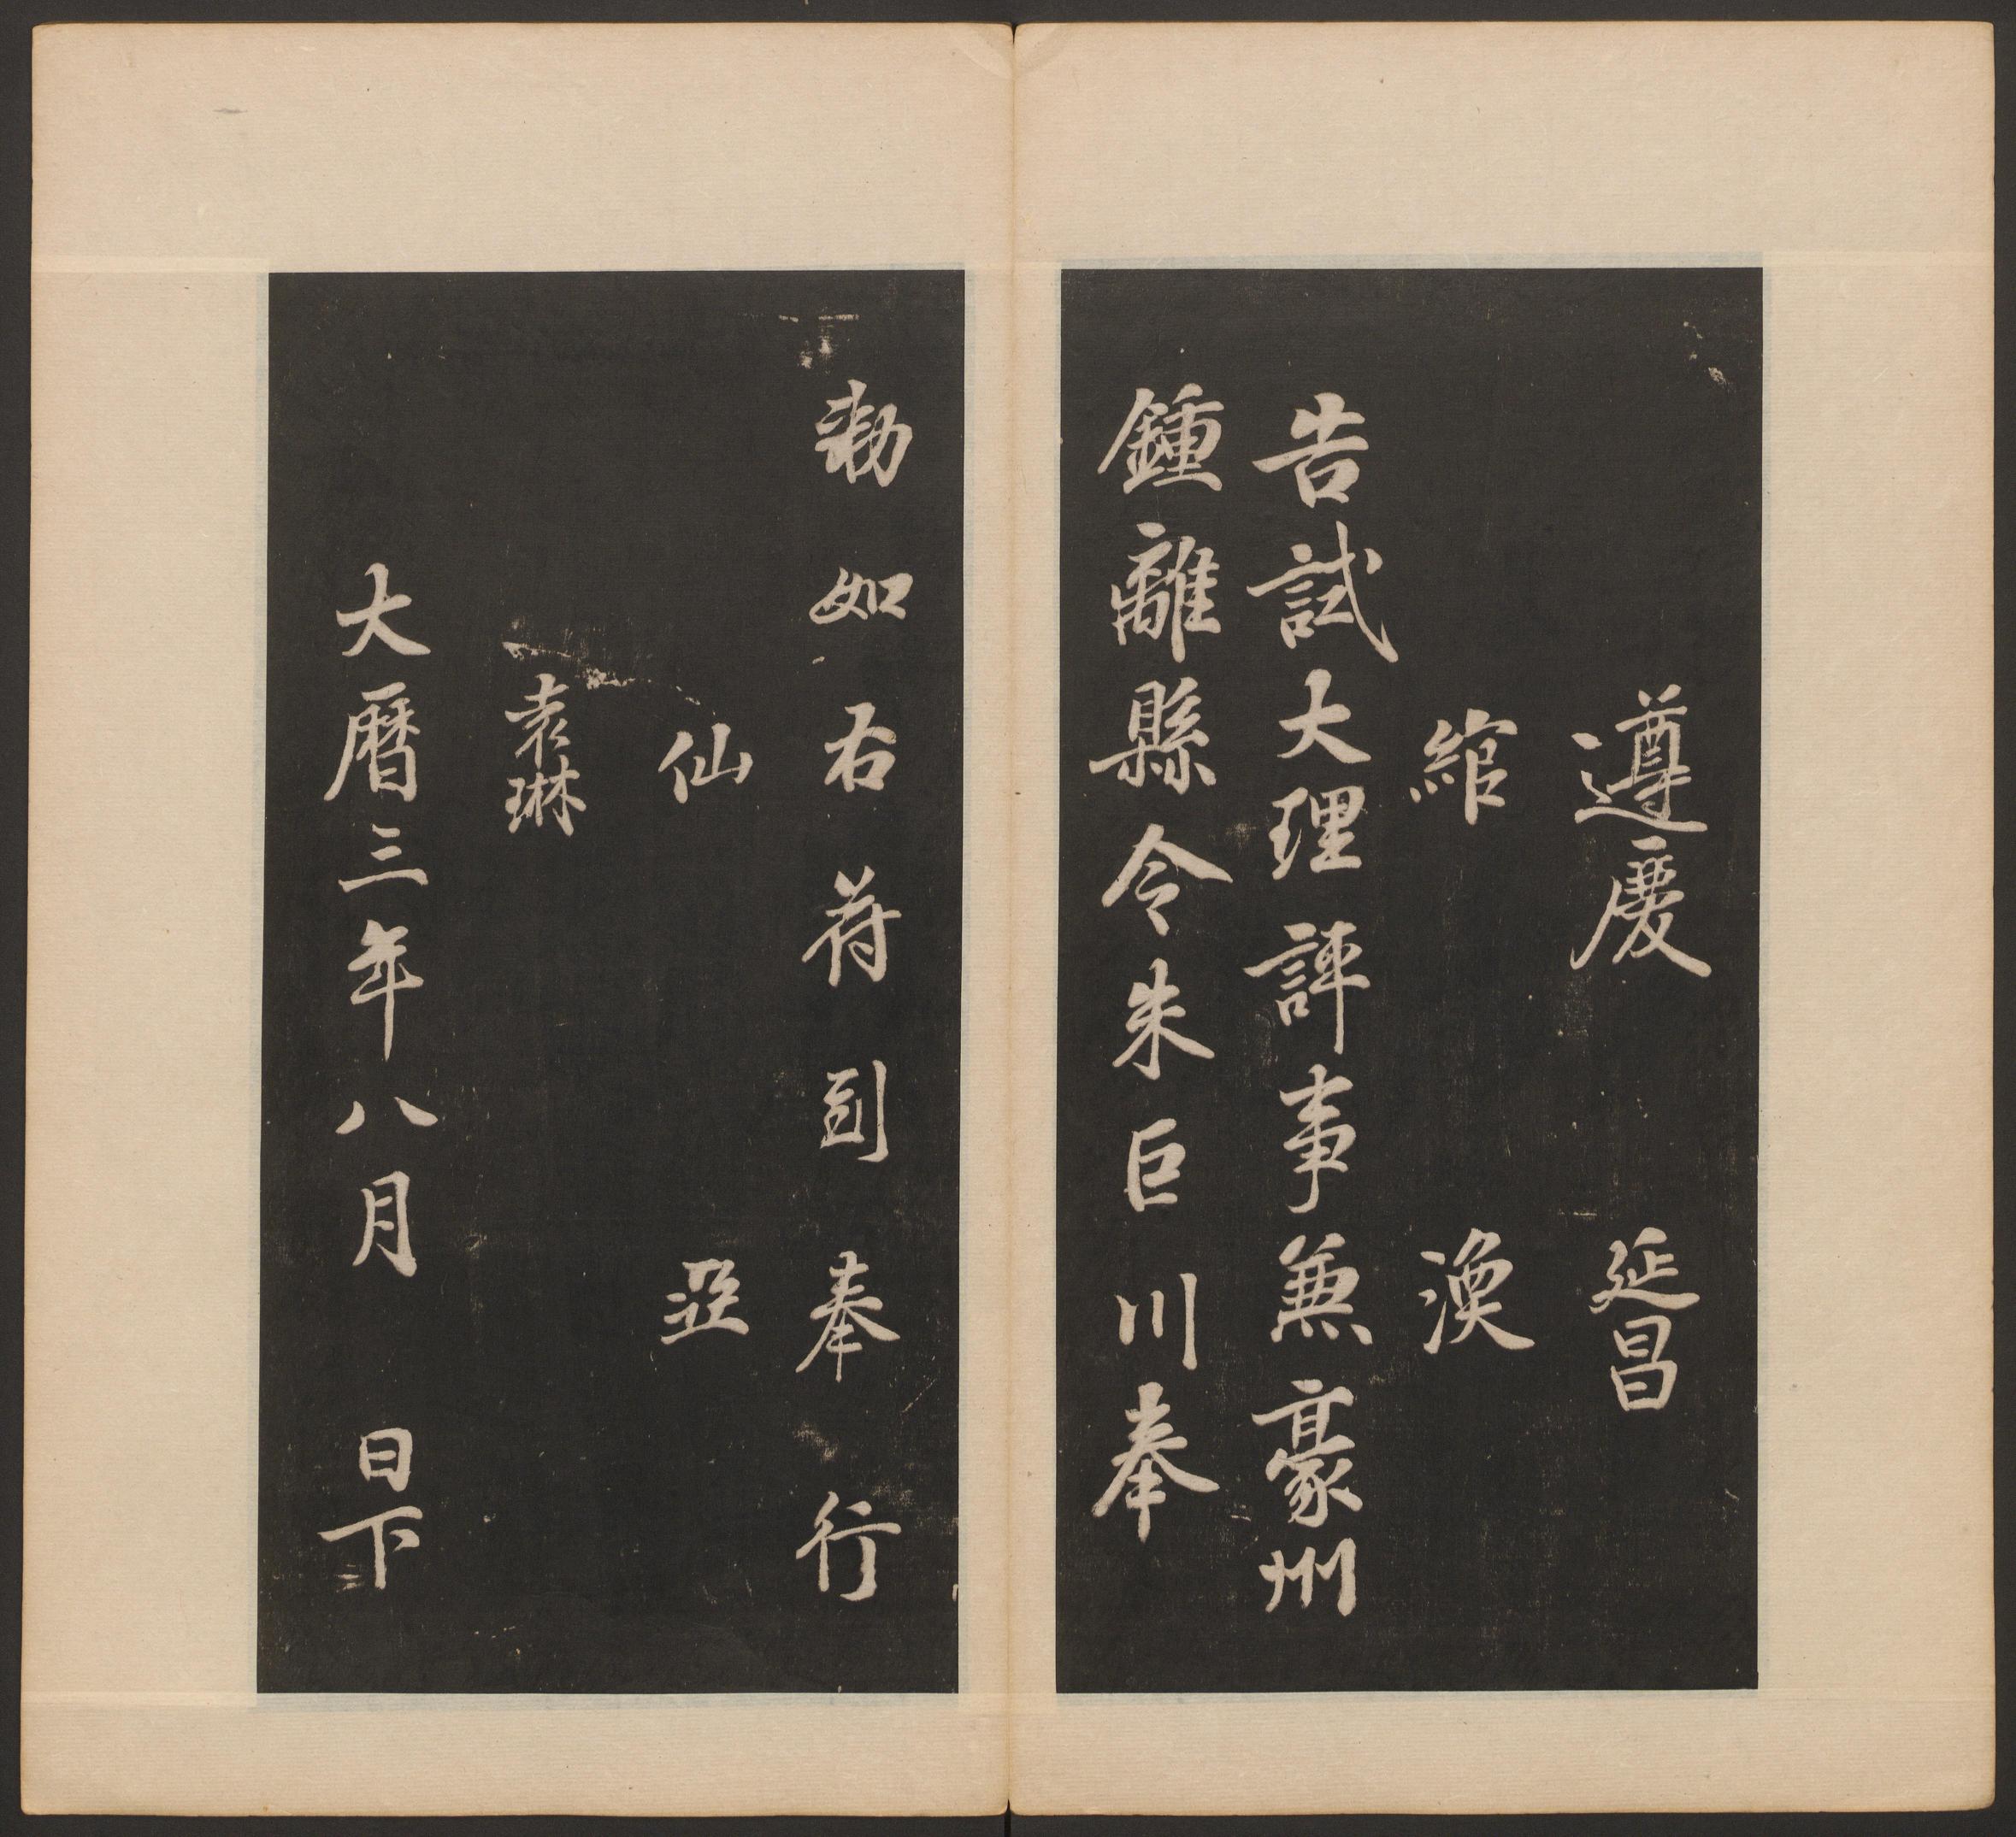 遵慶　延昌
綰　渙
告試大理評事兼豪州
鍾離縣令朱巨川奉
勑如右符到奉行
仙　亞
袁琳
大曆三年八月　日下